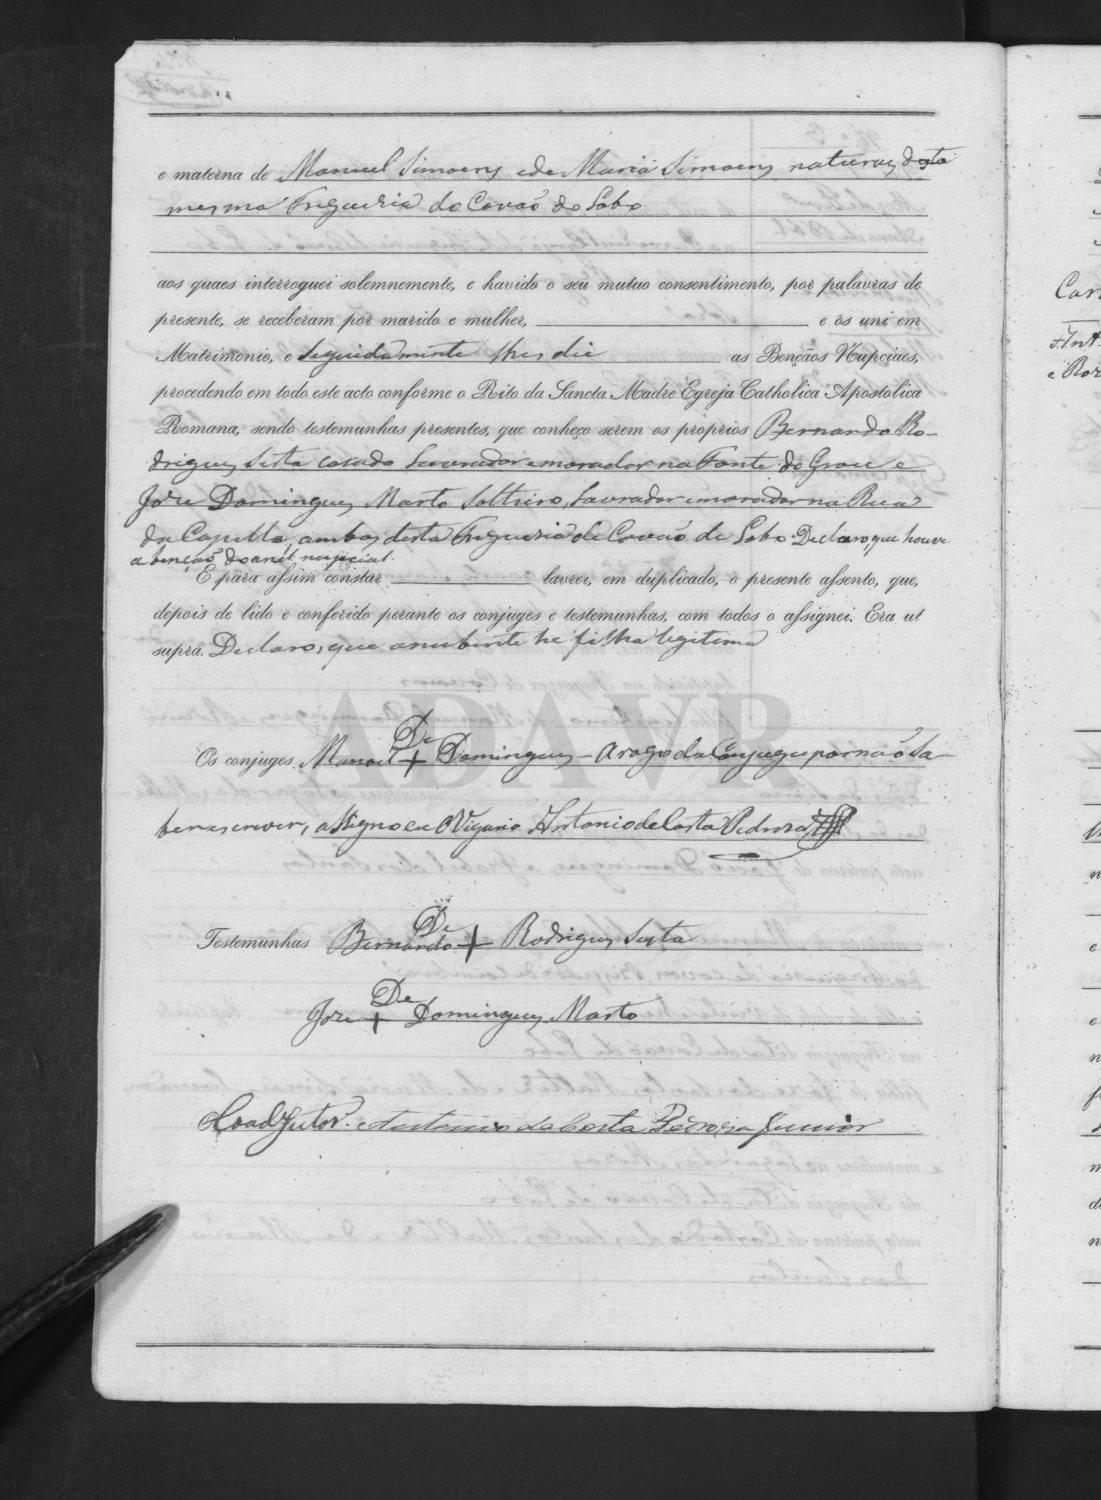 e materna de Manuel Simoens e de Maria Simoens naturaes desta
mesma Freguezia do Covaõ do Lobo
aos quaes interroguei solemnemente, e havido o seu mutuo consentimento, por palavras de
presente, se receberam por marido e mulher, e os uni em
Matrimonio, e seguidamente lhes dei as Bençãos Nupciaes,
procedendo em todo este acto conforme o Rito da Sancta Madre Egreja Catholica Apostolica
Romana, sendo testemunhas presentes, que conheço serem os proprios Bernardo Ro-
drigues Sista casado Lavrador e morador na Fonte do Grou e
Joze Domingues Marto Solteiro, Lavrador e morador na Rua
da Capella, ambos desta Freguezia de Covaõ do Lobo. Declaro, que houve
a benção do anel nupcial.
E para assim constar lavrei, em duplicado, o presente assento, que,
depois de lido e conferido perante os conjuges e testemunhas, com todos o assignei. Era ut
supra. Declaro, que a nubente he filha legitima
ADAVR
De
Os conjuges, Manoel + Domingues - A rogo da Conjuge por naõ Sa-
ber escrever, assigno eu O Vigario Antonio da Costa Pedroza
De
Testemunhas Bernardo + Rodrigues Sista
De
Joze + Domingues Marto
O Coadjutor. Antonio da Costa Pedroza Junior
Car
Ant.
e Roz